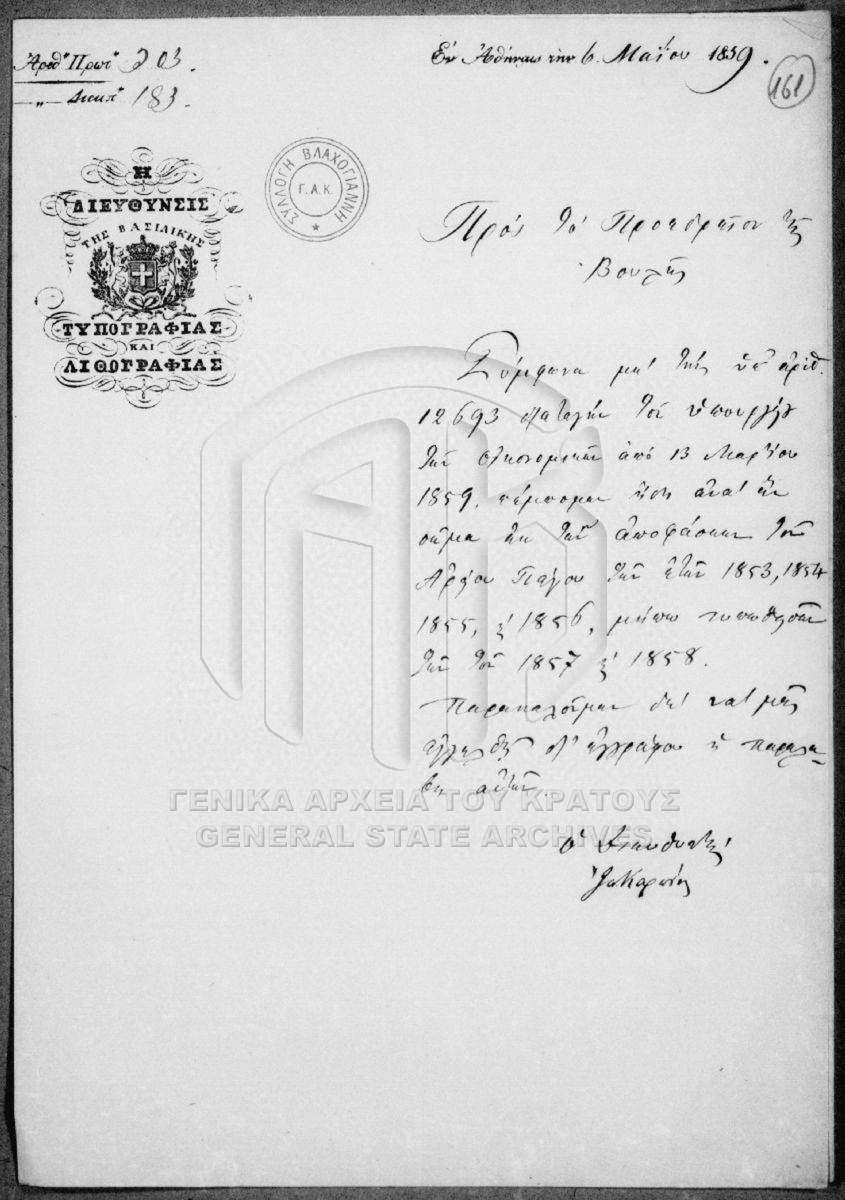 Ἀριθ. Πρωτ. 203.
—〃— Διεκπ. 183.
Ἐν Ἀθήναις τὴν 6 Μαΐου 1859.
161
Η
ΔΙΕΥΘΥΝΣΙΣ
ΤΗΣ ΒΑΣΙΛΙΚΗΣ
ΤΥΠΟΓΡΑΦΙΑΣ
ΚΑΙ
ΛΙΘΟΓΡΑΦΙΑΣ
ΣΥΛΛΟΓΗ ΒΛΑΧΟΓΙΑΝΝΗ
Γ.Α.Κ.
Πρὸς τὸ Προεδρεῖον τῆς
Βουλῆς
Σύμφωνα μὲ τὴν ὑπ' ἀριθ.
12693 διαταγὴν τοῦ ὑπουργείου
τῶν Οἰκονομικῶν ἀπὸ 13 Μαρτίου
1859, πέμπομεν ἀνὰ ἓν
σῶμα ἐκ τῶν ἀποφάσεων τοῦ
Ἀρείου Πάγου τῶν ἐτῶν 1853, 1854
1855, κ' 1856, μήπω τυπωθεισῶν
τῶν τοῦ 1857 κ' 1858.
Παρακαλοῦμεν δὲ νὰ μᾶς
δι' ἐγγράφου ἡ παραλα-
βὴ αὐτῶν.
Ὁ Διευθυντὴς
ΓΕΝΙΚΑ ΑΡΧΕΙΑ ΤΟΥ ΚΡΑΤΟΥΣ
GENERAL STATE ARCHIVES